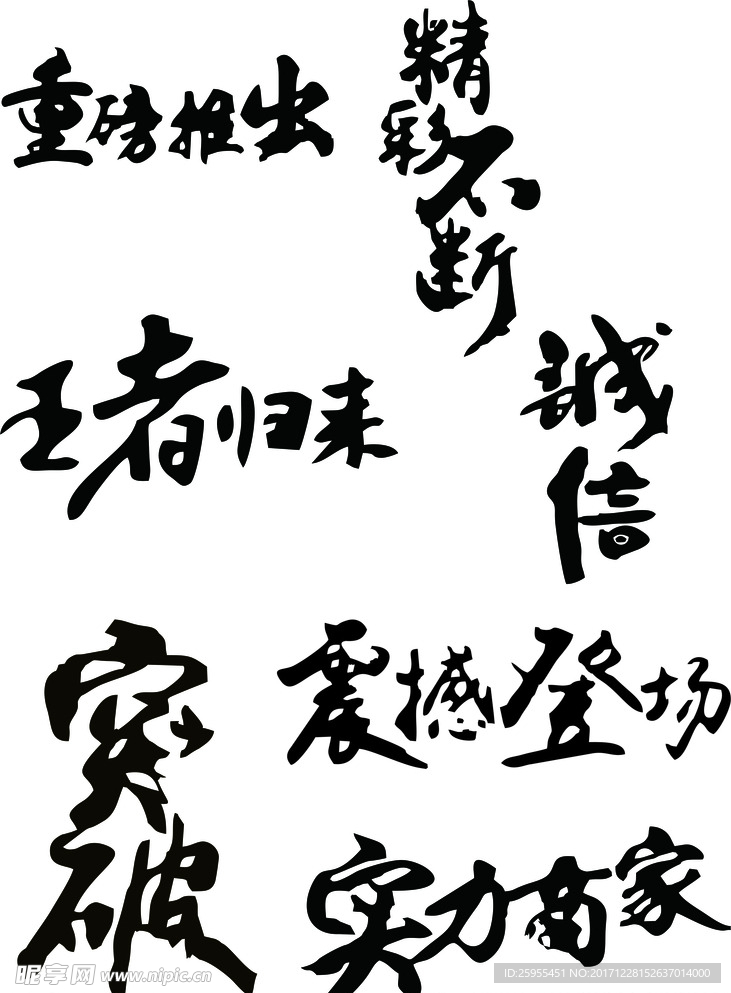 重磅推出
精彩不断
王者归来
誠信
突破
震撼登场
实力商家
昵享网 www.nipic.cn
ID:25955451 NO:20171228152637014000